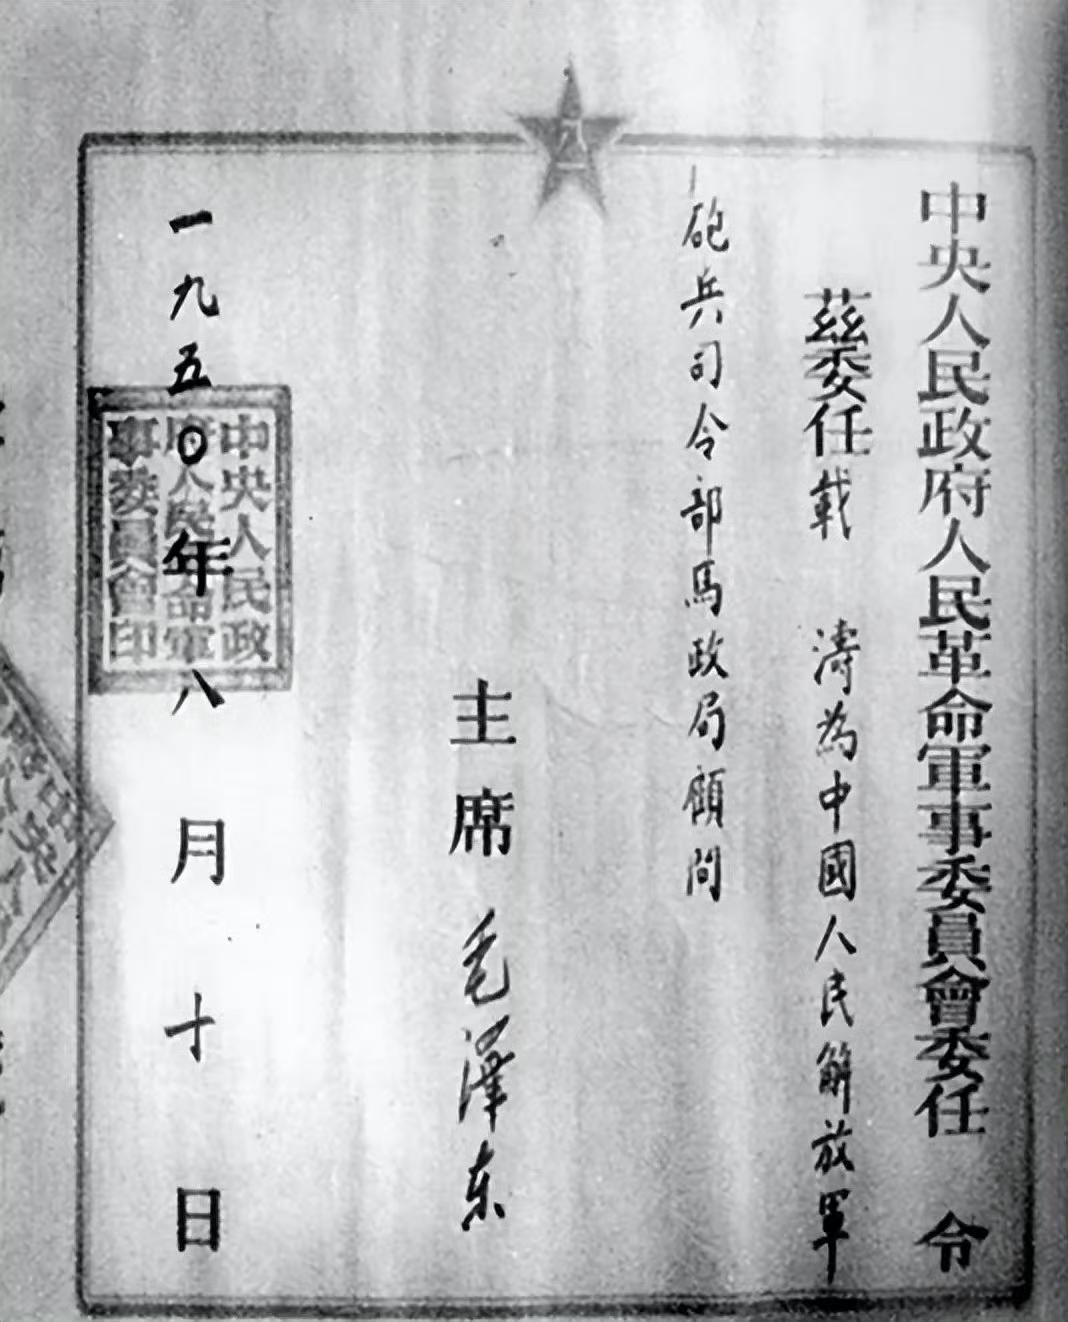 中央人民政府人民革命軍事委員會委任 令
茲委任載 濤為中國人民解放軍
砲兵司令部馬政局顧問
主席 毛泽东
一九五〇年八月十日
中央人民政
府人民革命軍
事委員會印